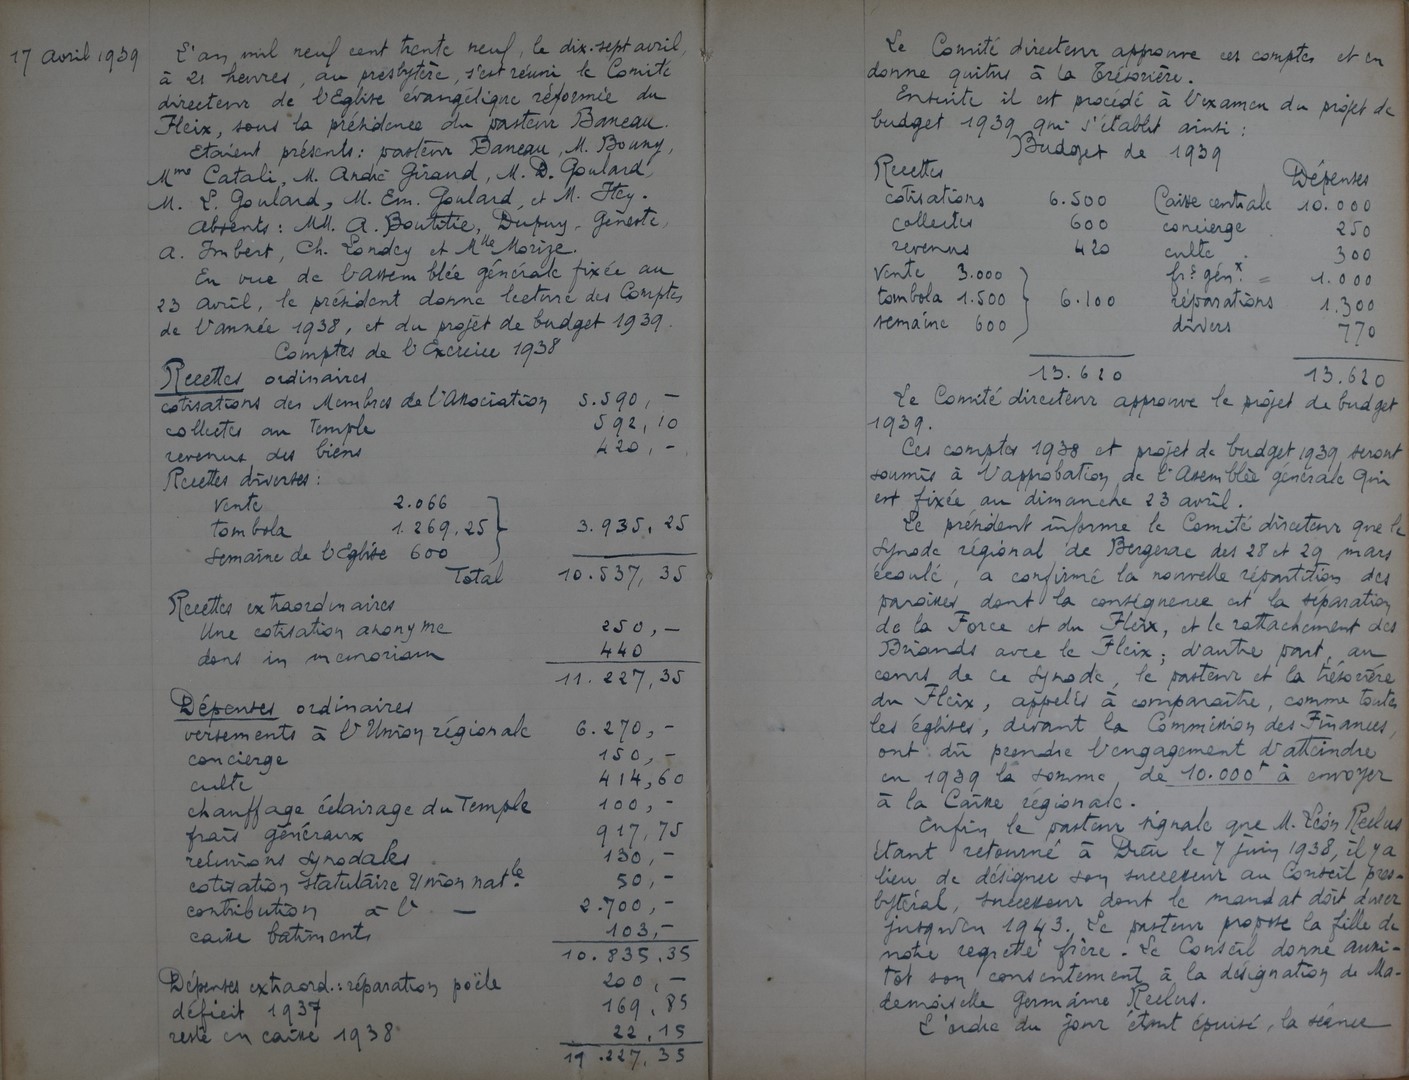 17 Avril 1939
L'an mil neuf cent trente neuf, le dix-sept avril,
à 21 heures, au presbytère, s'est réuni le Comité
directeur de l'Eglise évangélique réformée du
Fleix, sous la présidence du pasteur Baneau.
Etaient présents : pasteur Baneau, M. Bouny,
Mme Catali, M. André Giraud, M. D. Goulard,
M. L. Goulard, M. Em. Goulard, et M. Itey.
Absents : MM. A. Boutitie, Dupuy, Geneste,
A. Imbert, Ch. Londey et Mlle Morize.
En vue de l'Assemblée générale fixée au
23 avril, le président donne lecture des Comptes
de l'année 1938, et du projet de budget 1939.
Comptes de l'Exercice 1938
Recettes ordinaires
cotisations des Membres de l'Association 5.590,-
collectes au Temple 592,10
revenus des biens 420,-
Recettes diverses :
Vente 2.066
tombola 1.269,25 } 3.935,25
Semaine de l'Eglise 600
Total 10.537,35
Recettes extraordinaires
Une cotisation anonyme 250,-
dons in memoriam 440
11.227,35
Dépenses ordinaires
versements à l'Union régionale 6.270,-
concierge 150,-
culte 414,60
chauffage éclairage du Temple 100,-
frais généraux 917,75
réunions synodales 130,-
cotisation statutaire Union natle 50,-
contribution à l' — 2.700,-
caisse batiments 103,-
10.835,35
Dépenses extraord. : réparation poële 200,-
déficit 1937 169,85
reste en caisse 1938 22,15
11.227,35
Le Comité directeur approuve ces comptes et en
donne quitus à la Trésorière.
Ensuite il est procédé à l'examen du projet de
budget 1939 qui s'établit ainsi :
Budget de 1939
Recettes Dépenses
cotisations 6.500 Caisse centrale 10.000
collectes 600 concierge 250
revenus 420 culte 300
Vente 3.000 frs génx 1.000
tombola 1.500 } 6.100 réparations 1.300
semaine 600 divers 770
13.620 13.620
Le Comité directeur approuve le projet de budget
1939.
Ces comptes 1938 et projet de budget 1939 seront
soumis à l'approbation de l'Assemblée générale qui
est fixée au dimanche 23 avril.
Le président informe le Comité directeur que le
Synode régional de Bergerac des 28 et 29 mars
écoulé, a confirmé la nouvelle répartition des
paroisses dont la conséquence est la séparation
de la Force et du Fleix, et le rattachement des
Briands avec le Fleix ; d'autre part, au
cours de ce Synode, le pasteur et la trésorière
du Fleix, appelés à comparaître, comme toutes
les églises, devant la Commission des Finances,
ont dû prendre l'engagement d'atteindre
en 1939 la somme de 10.000f à envoyer
à la Caisse régionale.
Enfin le pasteur signale que M. Léon Reclus
étant retourné à Dieu le 7 juin 1938, il y a
lieu de désigner son successeur au Conseil pres-
bytéral, successeur dont le mandat doit durer
jusqu'en 1943. Le pasteur propose la fille de
notre regretté frère. Le Conseil donne aussi-
tôt son consentement à la désignation de Ma-
demoiselle Germaine Reclus.
L'ordre du jour étant épuisé, la séance